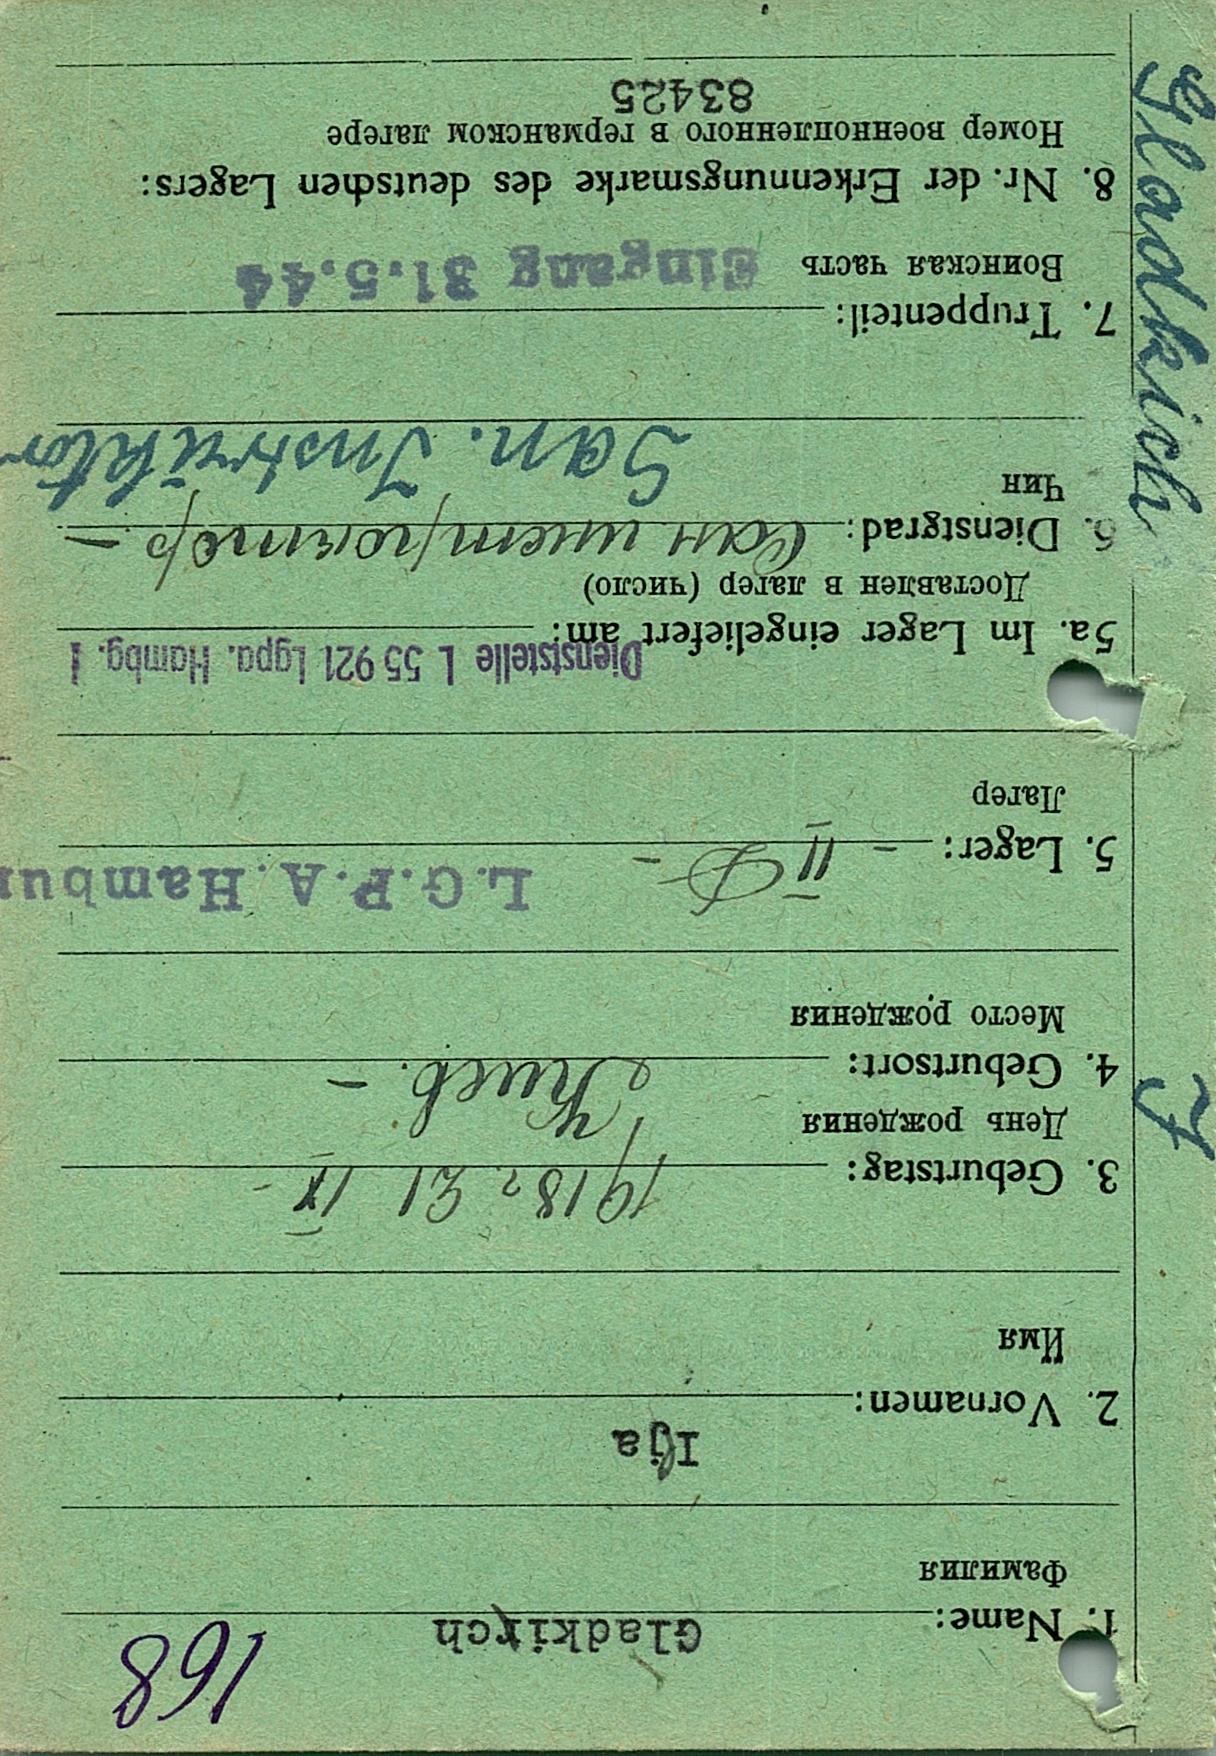 168
1. Name: Gladkirch
Фамилия
2. Vornamen: Ilja
Имя
3. Geburtstag: 1918 г 21 IX -
День рождения
4. Geburtsort: Киев. -
Место рождения
5. Lager: - II D -
L.G.P.A. Hambur
Лагер
Dienststelle L 55 921 Lgpa. Hambg. 1
5a. Im Lager eingeliefert am:
Доставлен в лагер (число)
6. Dienstgrad: Сан инструктор -
Чин
San. Instruktor
7. Truppenteil:
Воинская часть
Eingang 31.5.44
8. Nr. der Erkennungsmarke des deutschen Lagers:
Номер военнопленного в германском лагере
83425
Gladkich
J